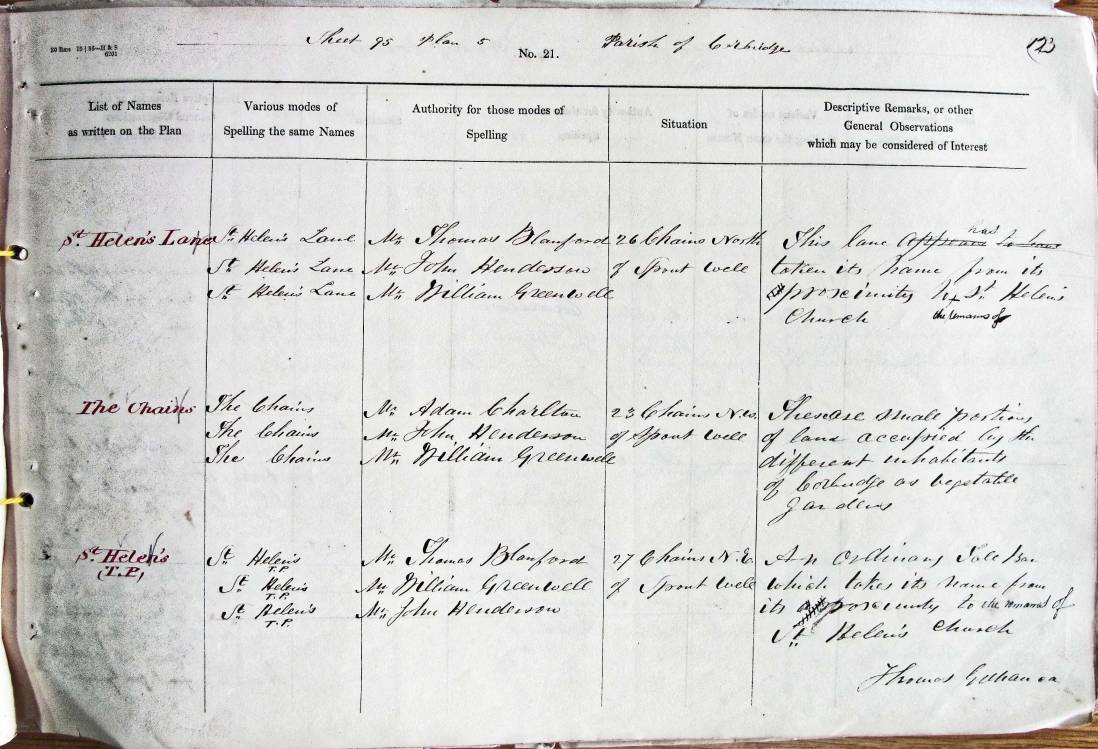 20 Rms 10 | 56—H & S
6201
Sheet 95 Plan 5 No. 21. Parish of Corbridge 123
List of Names
as written on the Plan
Various modes of
Spelling the same Names
Authority for those modes of
Spelling
Situation
Descriptive Remarks, or other
General Observations
which may be considered of Interest
St. Helen's Lane
St. Helen's Lane
St. Helen's Lane
St. Helen's Lane
Mr. Thomas Blanford
Mr. John Henderson
Mr. William Greenwell
26 Chains North
of Spout Well
This lane appears to have has
taken its name from its
proximity to St. Helen's
the remains of
Church
The Chains
The Chains
The Chains
The Chains
Mr. Adam Charlton
Mr. John Henderson
Mr. William Greenwell
23 Chains N.W.
of Spout Well
These are small portions
of land occupied by the
different inhabitants
of Corbridge as vegetable
gardens
St. Helen's
(T.P.)
St. Helen's
T.P.
St. Helen's
T.P.
St. Helen's
T.P.
Mr. Thomas Blanford
Mr. William Greenwell
Mr. John Henderson
27 Chains N.E.
of Spout Well
An ordinary Tole Bar
which takes its name from
its proximity to the remains of
St. Helen's Church
Thomas